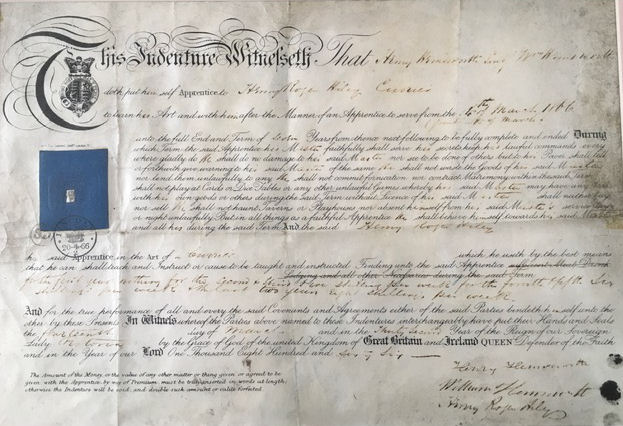 This Indenture Witnesseth That Henry Hemsworth Son of Wm Hemsworth
doth put him self Apprentice to Henry Roger Riley Currier
to learn his Art and with him after the Manner of an Apprentice to serve from the
unto the full End and Term of Years from thence next following to be fully complete and ended During
which Term the said Apprentice his Master faithfully shall serve his secrets keep his lawful commands every
where gladly do He shall do no damage to his said Master nor see to be done of others but to his Power shall tell
or forthwith give warning to his said Master of the same He shall not waste the Goods of his said Master
nor lend them unlawfully to any He shall not commit fornication nor contract Matrimony within the said Term
shall not play at Cards or Dice Tables or any other unlawful Games whereby his said Master may have any loss
with his own goods or others during the said Term without Licence of his said Master shall neither buy
nor sell He shall not haunt Taverns or Playhouses nor absent himself from his said Master's service day
or night unlawfully But in all things as a faithful Apprentice He shall behave himself towards his said Master
and all his during the said Term And the said Henry Roger Riley
20-4-66
his said Apprentice in the Art of a Currier which he useth by the best means
that he can shall teach and Instruct or cause to be taught and instructed Finding unto the said Apprentice
Lodging and all other Necessaries during the said Term
two years eight shillings per week
And for the true performance of all and every the said Covenants and Agreements either of the said Parties bindeth himself unto the
other by these Presents In Witness whereof the Parties above named to these Indentures interchangeably have put their Hands and Seals
the day of and in the Year of the Reign of our Sovereign
Lady Victoria by the Grace of God of the united Kingdom of Great Britain and Ireland QUEEN Defender of the Faith
and in the Year of our Lord One Thousand Eight Hundred and Sixty Six
Henry Hemsworth
William Hemsworth
Henry Roger Riley
The Amount of the Money, or the value of any other matter or thing given or agreed to be
given with the Apprentice, by way of Premium, must be truly inserted in words at length;
otherwise the Indenture will be void, and double such amount or value forfeited.